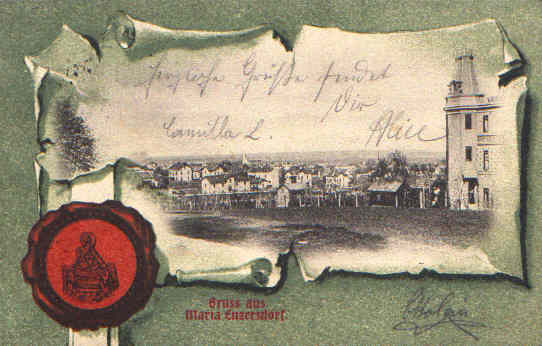 Herzliche Grüße sendet
Dir
Camilla L. Alice
Gruss aus
Maria Enzersdorf.